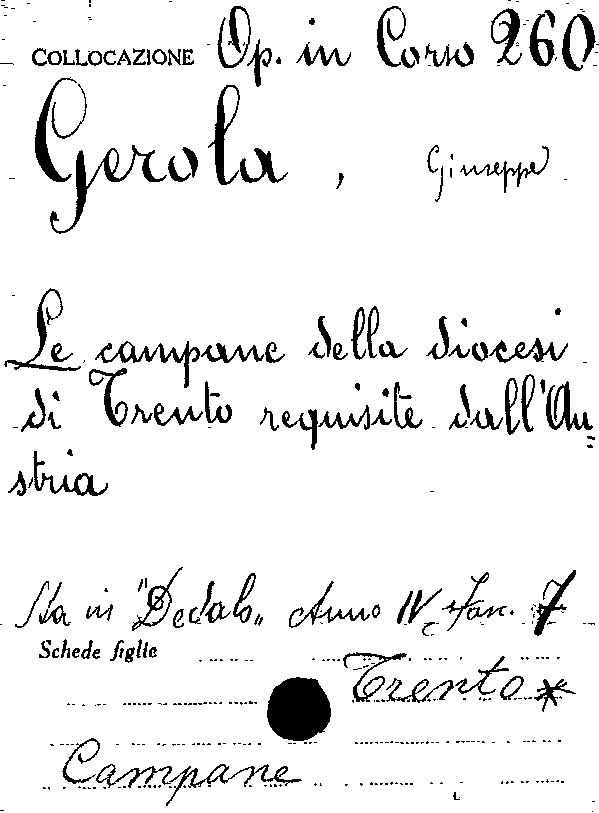 COLLOCAZIONE Op. in Corso 260
Gerola, Giuseppe
Le campane della diocesi
di Trento requisite dall'Au=
stria
Sta in "Dedalo" Anno IV Fasc. 7
Schede figlie
Trento *
Campane